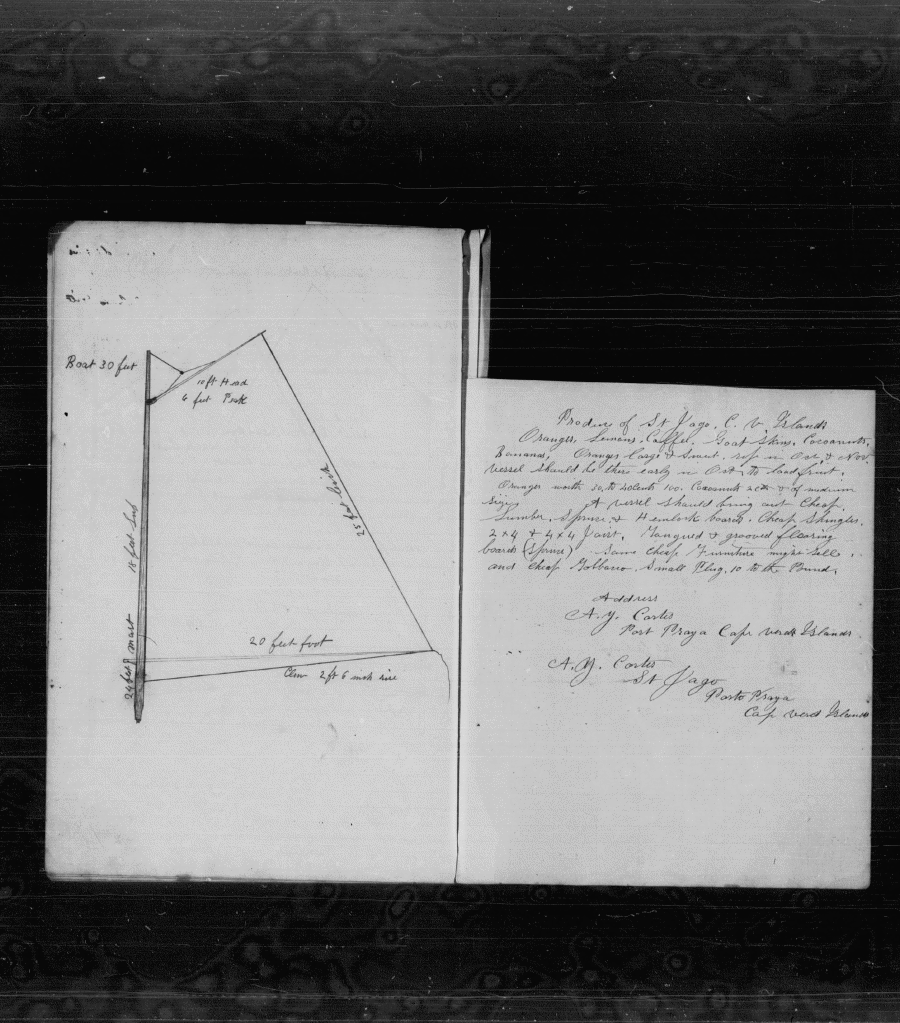 Boat 30 feet
10 ft Head
6 feet Peak
25 feet leich
18 feet luff
20 feet foot
Clew 2 ft 6 inch rise
24 feet mast
Produce of St Jago. C. V. Islands
Oranges, Lemons, Coffee, Goat Skins, Cocoanuts,
Bananas, Oranges large & Sweet, rip in Oct, & Nov
vessel should be there early in Oct, to load fruit.
Oranges worth 30 to 40 cents 100. Cocoanuts of medium
size, A vessel should bring out Cheap
Lumber, Spruce & Hemlock boards. Cheap Shingles.
2 x 4 & 4 x 4 Joist, Tongued & grooved flooring
boards (Spruce) Some Cheap Furniture might Sell,
and Cheap Tobbacco. Small Plug. 10 to the Pound,
Address
A. Y. Cortes
Port Praya Cape verde Islands
A. Y. Cortes
St Jago
Porto Praya
Cap verd Islands